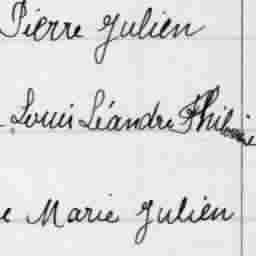 Pierre Julien
Louis Léandre
e Marie Julien